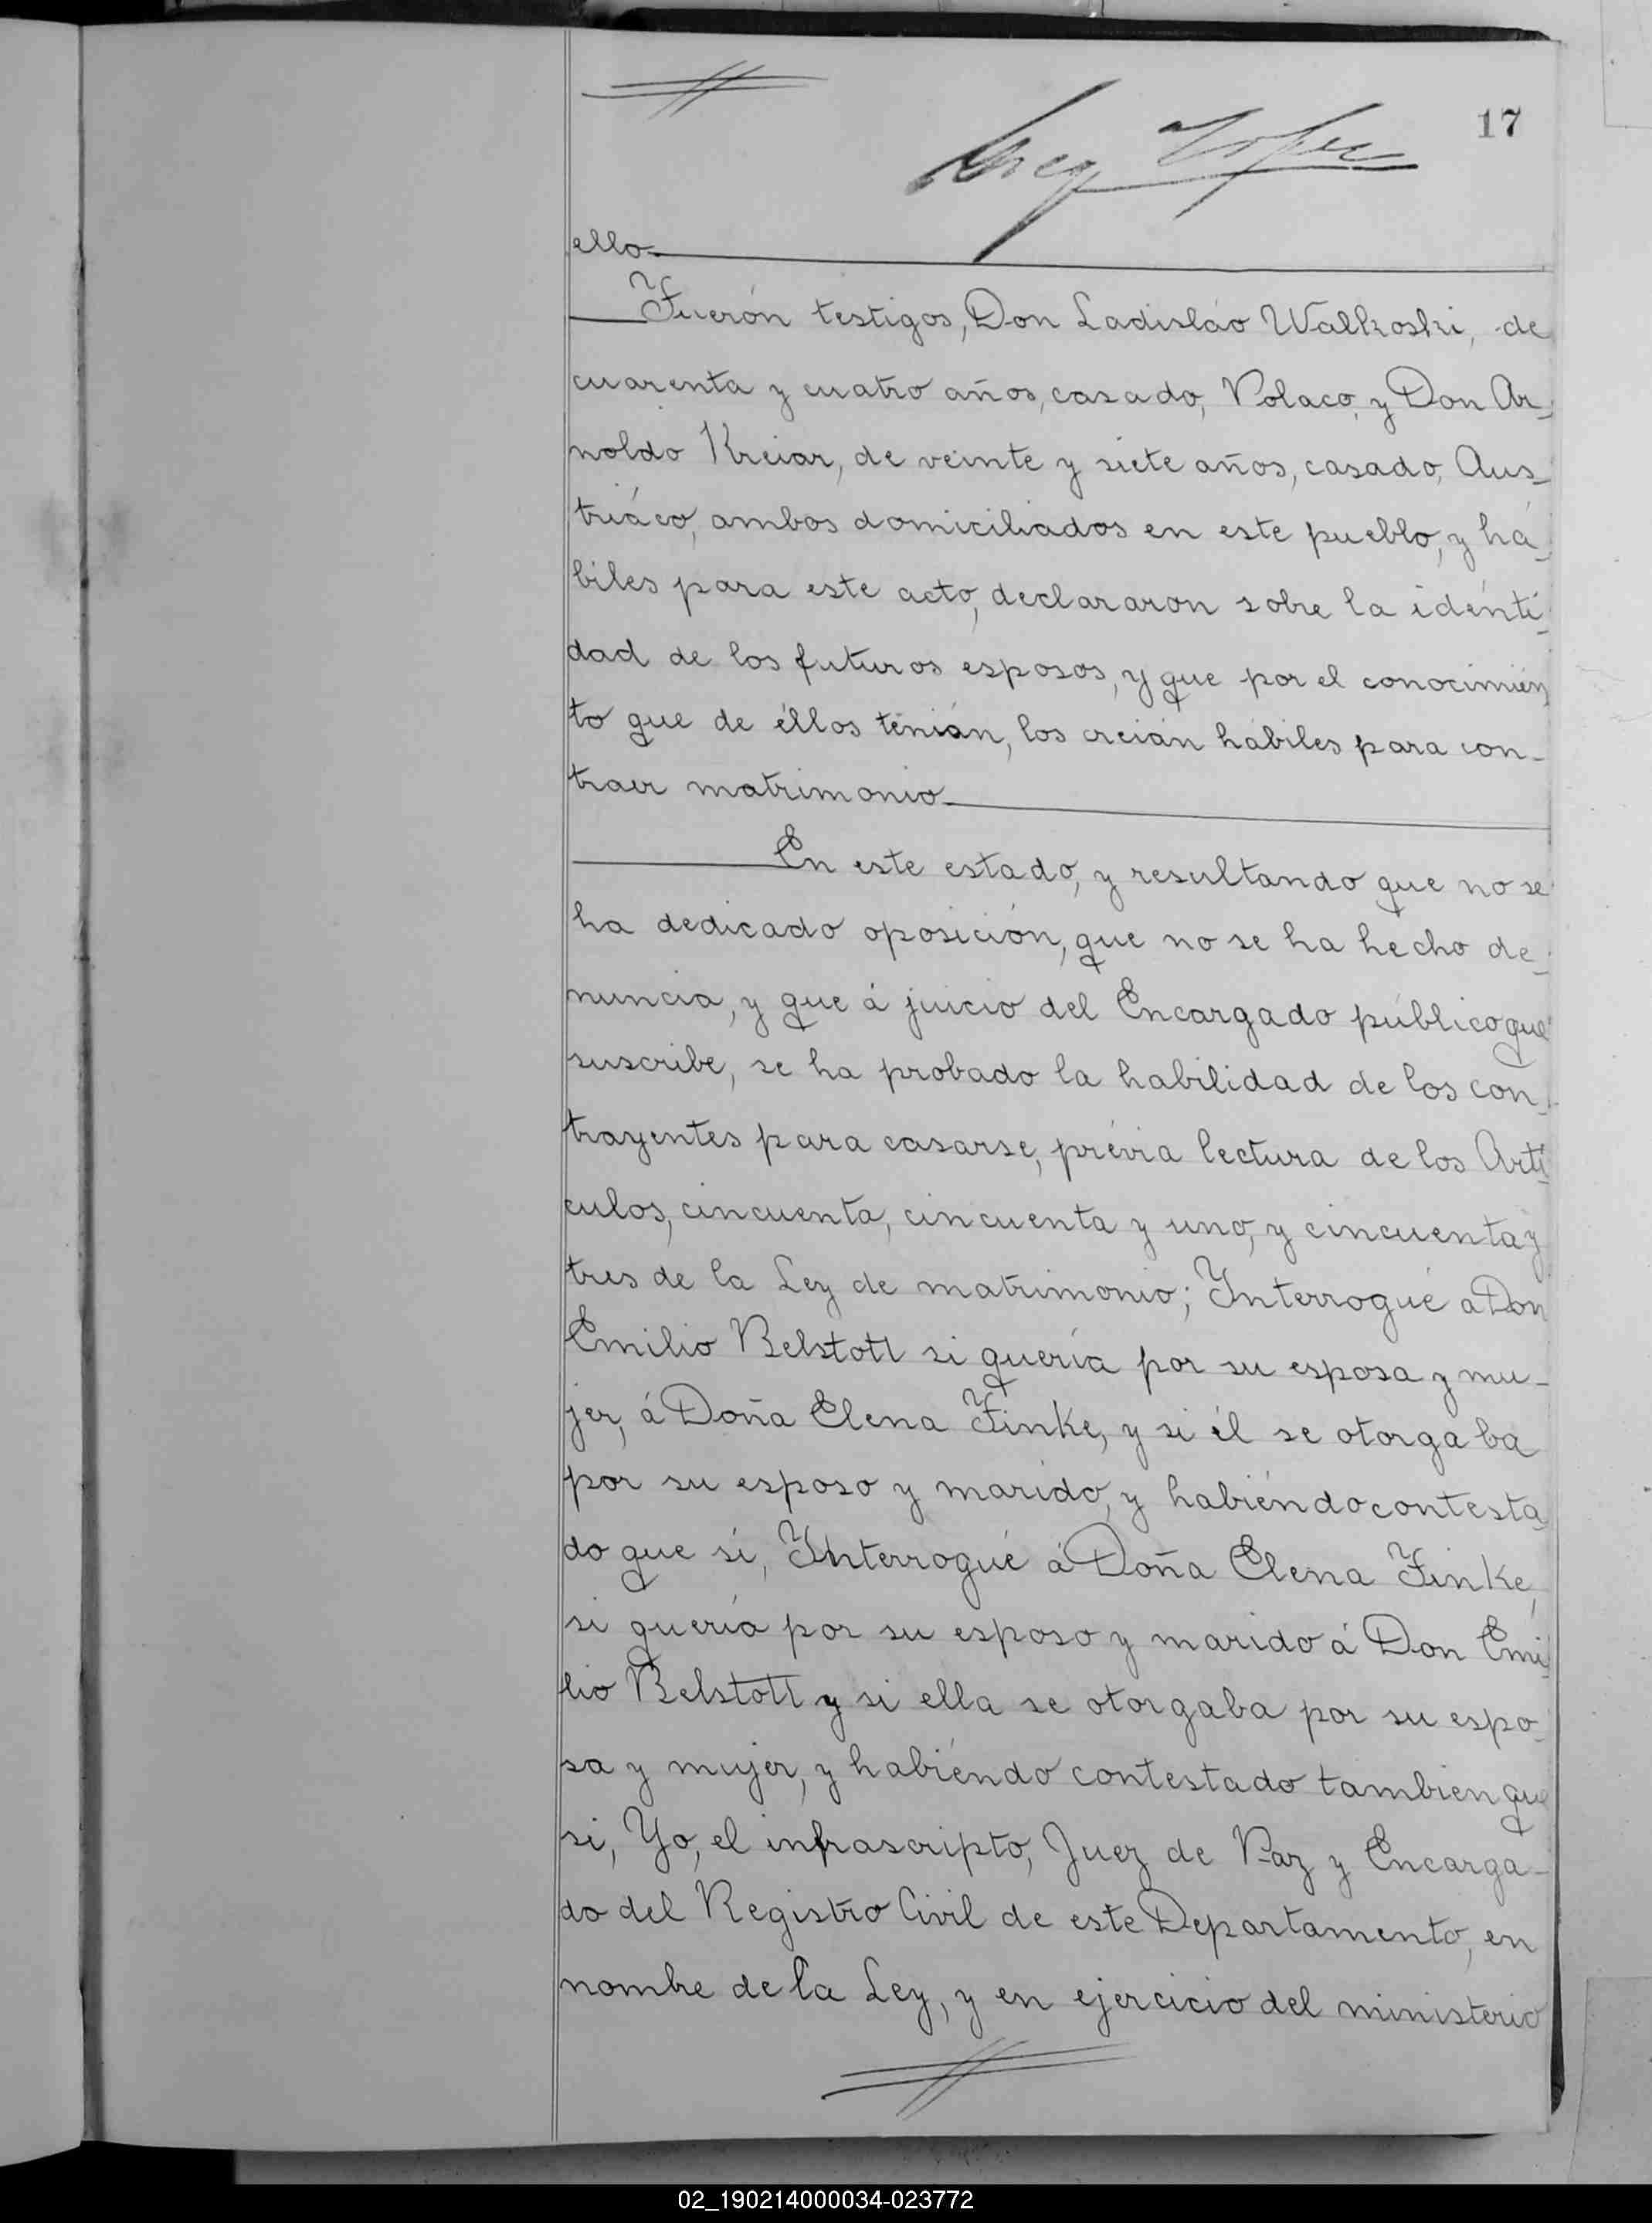 17
ello
Fuerón testigos, Don Ladisláo Walkoski, de
cuarenta y cuatro años, casado, Polaco, y Don Ar-
noldo Kreiar, de veinte y siete años, casado, Aus-
triáco, ambos domiciliados en este pueblo, y há-
biles para este acto, declararon sobre la idénti-
dad de los futuros esposos, y que por el conocimién-
to que de éllos tenián, los creián hábiles para con-
traer matrimonio
En este estado, y resultando que no se
ha dedicado oposición, que no se ha hecho de-
nuncia, y que á juicio del Encargado público que
suscribe, se ha probado la habilidad de los con-
trayentes para casarse, prévia lectura de los Artí-
culos, cincuenta, cincuenta y uno, y cincuenta y
tres de la Ley de matrimonio; Interrogué a Don
Emilio Belstott si quería por su esposa y mu-
jer, á Doña Elena Finke, y si él se otorgaba
por su esposo y marido, y habiéndo contesta-
do que sí, Interrogué á Doña Elena Finke,
si quería por su esposo y marido á Don Emi-
lio Belstott y si ella se otorgaba por su espo-
sa y mujer, y habiéndo contestado tambien que
si, Yo, el infrascripto, Juez de Paz y Encarga-
do del Registro Civil de este Departamento, en
nombre de la Ley, y en ejercicio del ministerio
02_190214000034-023772